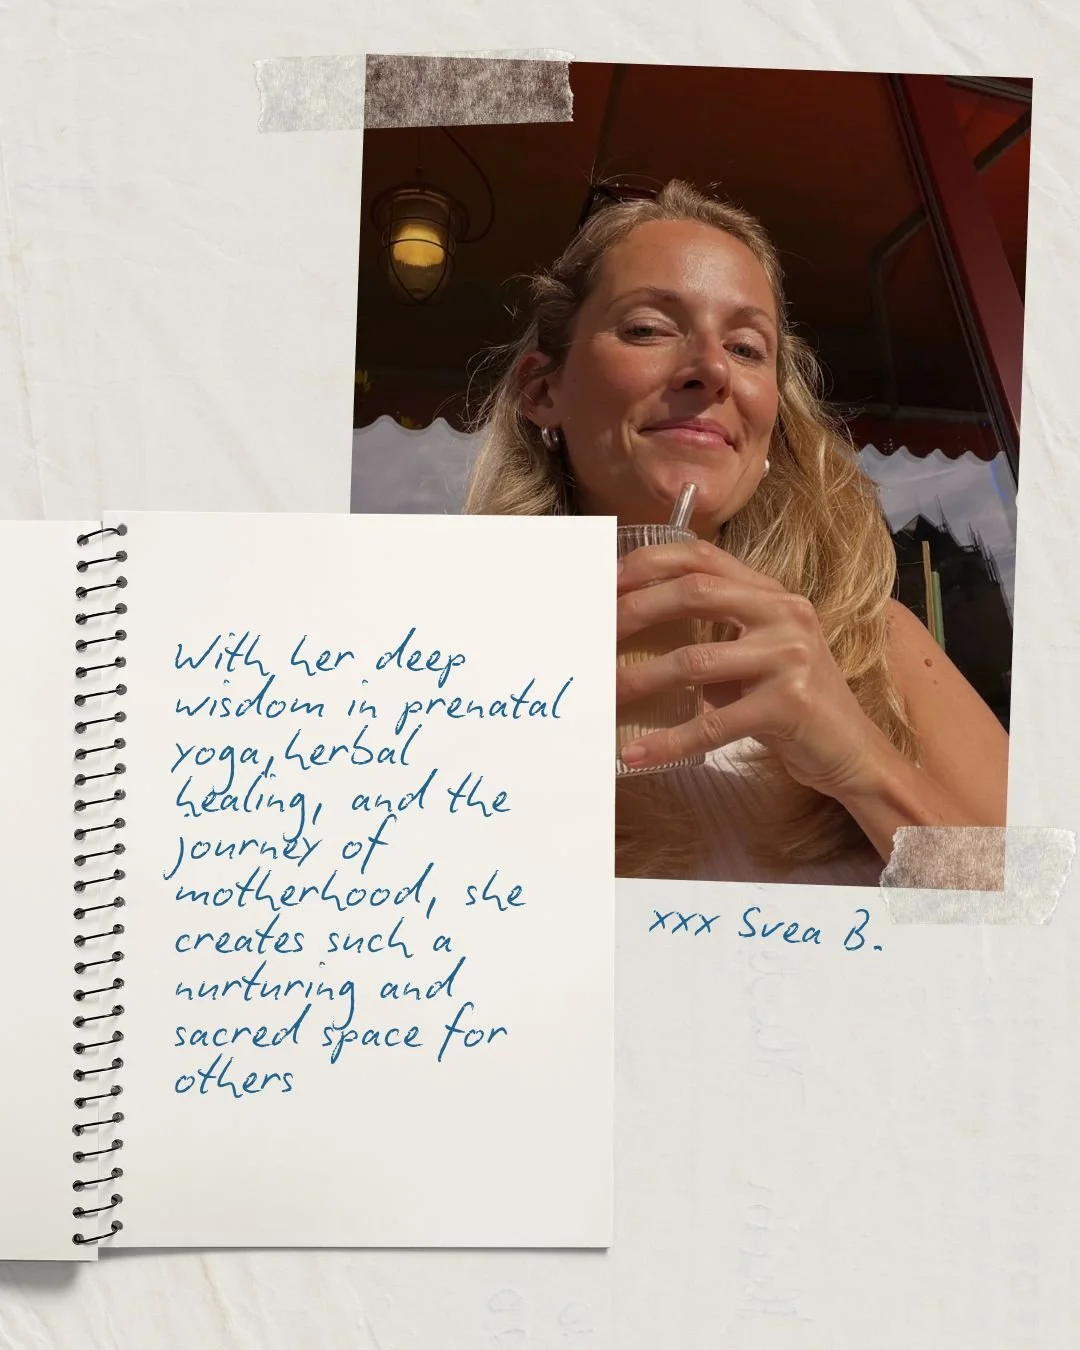 With her deep
wisdom in prenatal
yoga, herbal
healing, and the
journey of
motherhood, she
creates such a
nurturing and
sacred space for
others
xxx Svea B.